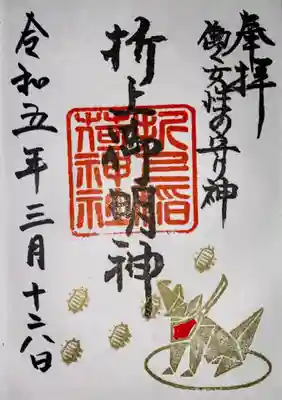 奉拝
働く女性の守り神
折上御明神
折上稲
荷神社
令和五年三月十六日